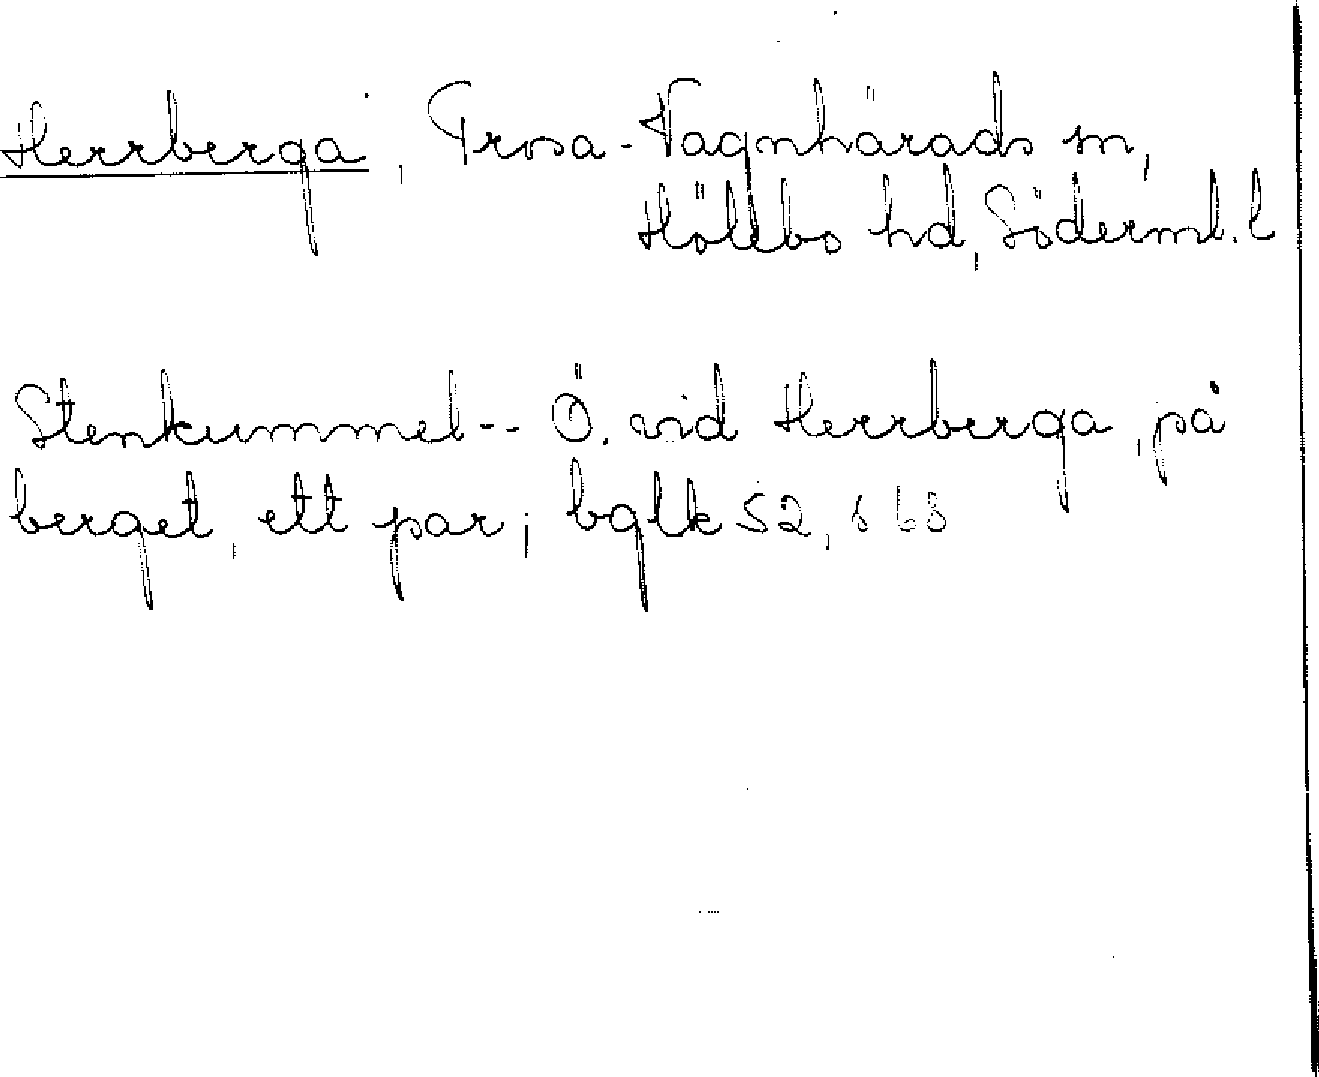 Herrberga, Trosa-Vagnhärads sn,
Hölebo hd, Söderml. l
Stenkummel-- Ö. vid Herrberga, på
berget, ett par; bglk 52, s 68